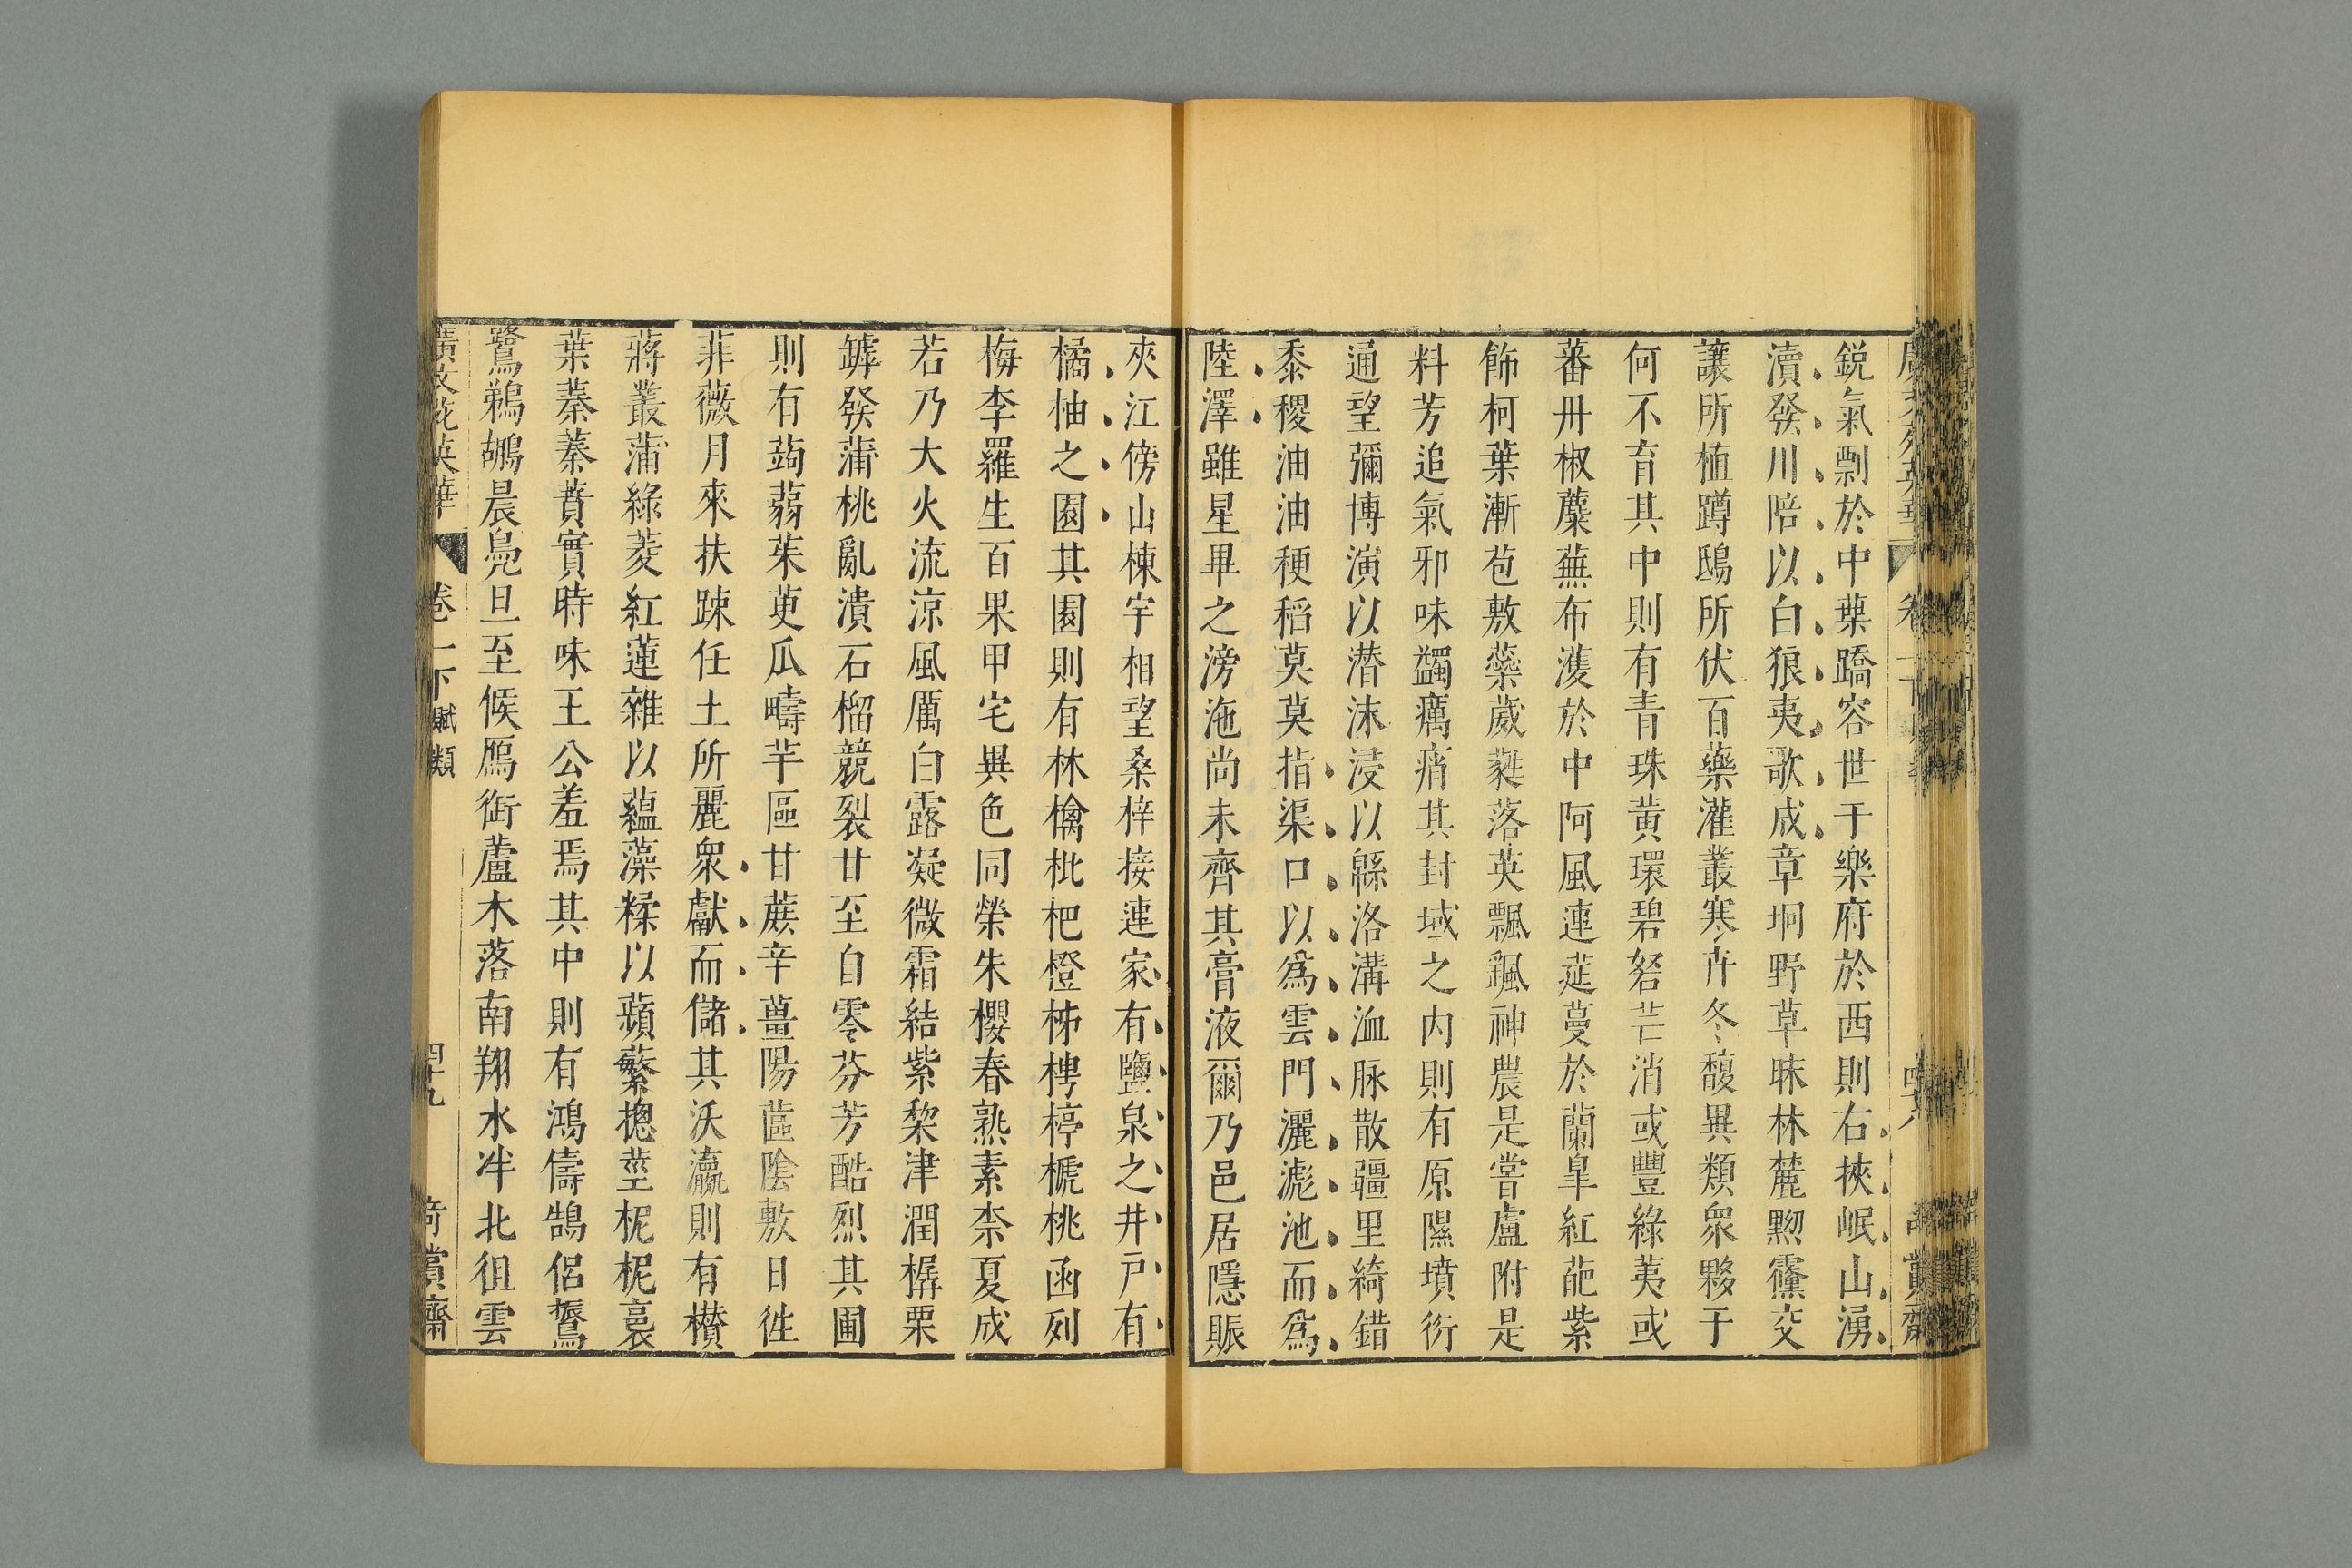 銳氣剽於中葉蹻容世于樂府於西則右挾岷山湧
瀆發川陪以白狼夷歌成章坰野草昧林麓黝儵交
讓所植蹲鴟所伏百藥灌叢寒卉冬馥異類衆夥于
何不育其中則有青珠黃環碧砮芒消或豐綠荑或
蕃丹椒蘪蕪布濩於中阿風連莚蔓於蘭皐紅葩紫
飾柯葉漸苞敷蘂葳蕤落英飄颻神農是嘗盧附是
料芳追氣邪味蠲癘痟其封域之內則有原隰墳衍
通望彌博演以潜沫浸以緜洛溝洫脉散疆里綺錯
黍稷油油稉稻莫莫指渠口以爲雲門灑滮池而爲
陸澤雖星畢之滂沲尚未齊其膏液爾乃邑居隱賑
夾江傍山棟宇相望桑梓接連家有鹽泉之井戸有
橘柚之園其園則有林檎枇杷橙柹梬楟榹桃函列
梅李羅生百果甲宅異色同榮朱櫻春熟素柰夏成
若乃大火流涼風厲白露凝微霜結紫棃津潤樼栗
罅發蒲桃亂潰石榴競裂甘至自零芬芳酷烈其圃
則有蒟蒻茱萸瓜疇芋區甘蔗辛薑陽蓲陰敷日徃
菲薇月來扶踈任土所麗衆獻而儲其沃瀛則有櫕
蔣叢蒲綠菱紅蓮雜以蘊藻糅以蘋蘩摠莖柅柅裛
葉蓁蓁蕡實時味王公羞焉其中則有鴻儔鵠侶鴛
鷺鵜鶘晨鳧旦至候鴈銜蘆木落南翔水泮北徂雲
廣文苑英華 卷一下 賦類 四十九 奇賞齋